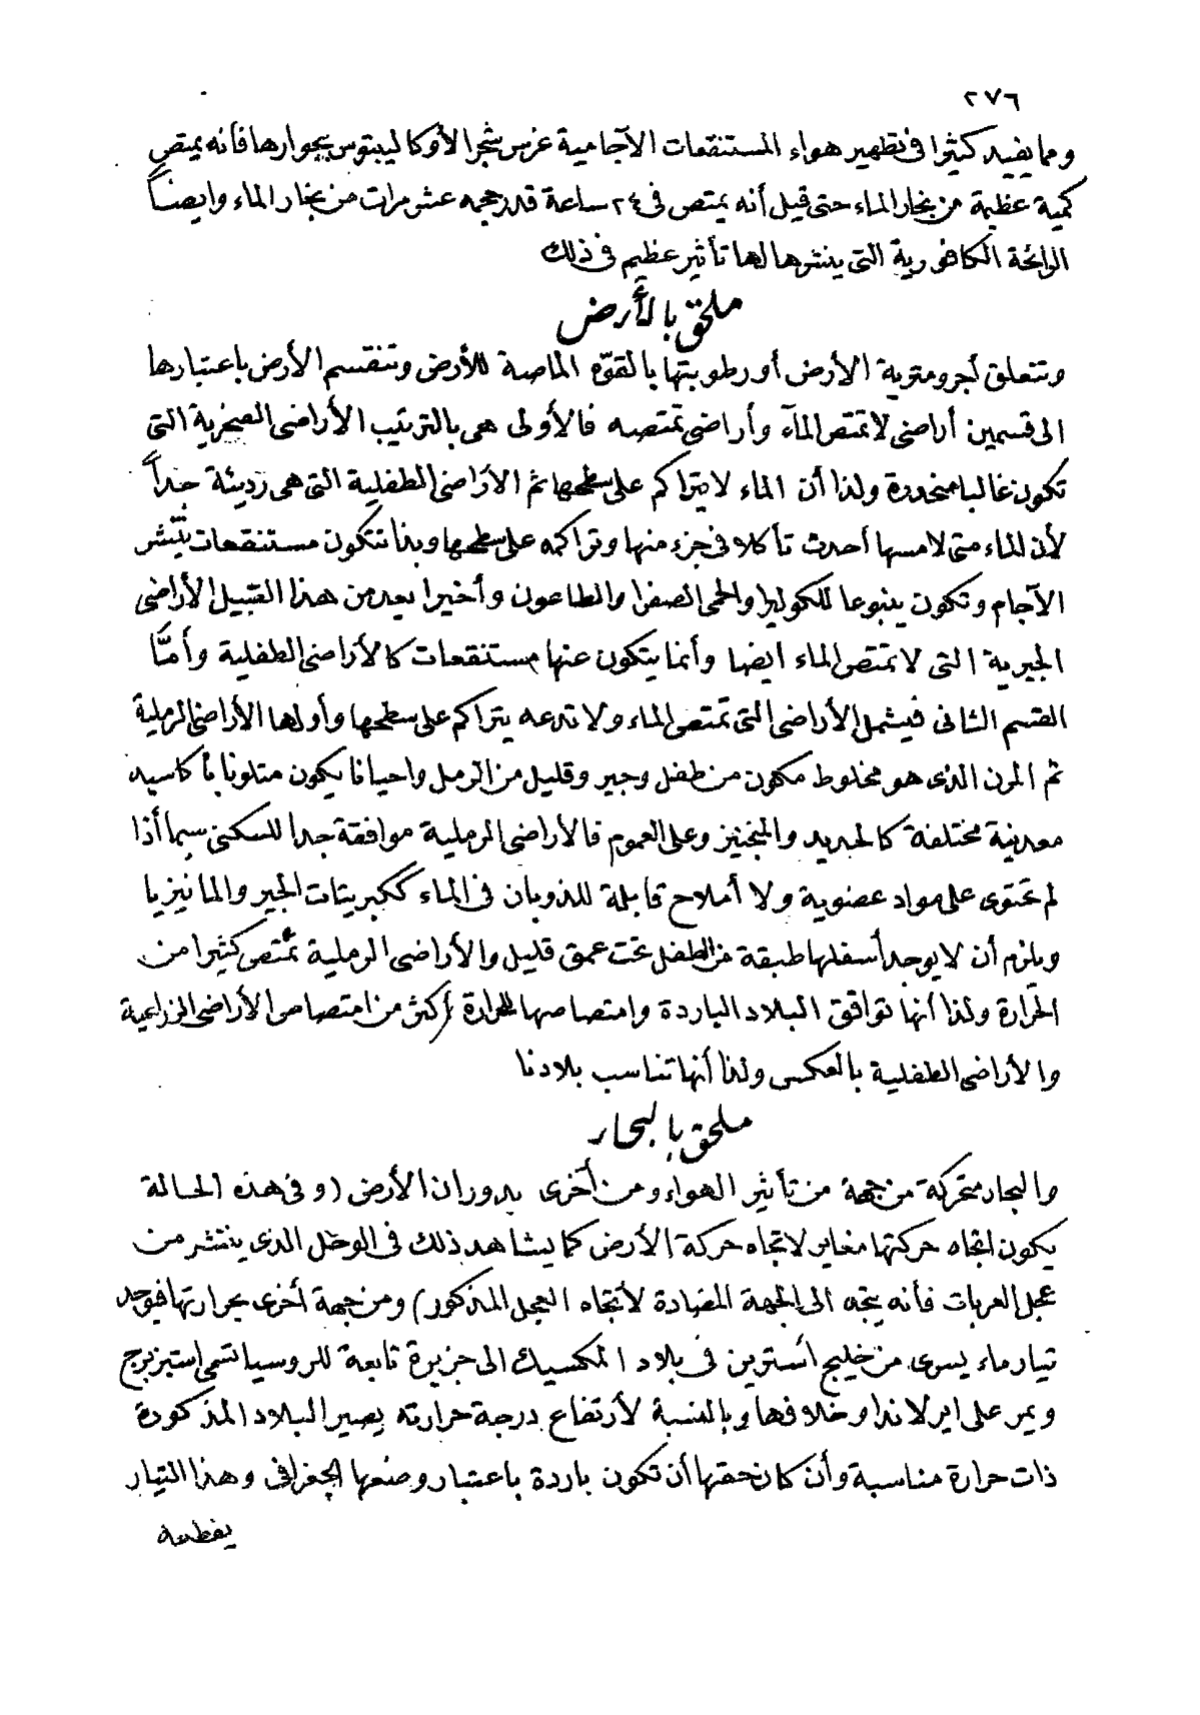 ٢٧٦
ومما يفيد كثيرا فى تطهير هواء المستنقعات الآجامية غرس شجر الأوكاليبتوس بجوارها فأنه يمتص
كمية عظيمة من بخار الماء حتى قيل أنه يمتص فى ٢٤ ساعة قدر حجمه عشر مرات من بخار الماء وايضاً
الرائحة الكافورية التى ينشرها لها تأثير عظيم فى ذلك
ملحق بالأرض
وتتعلق أجرومترية الأرض أو رطوبتها بالقوّه الماصة للأرض وتنقسم الأرض باعتبارها
الى قسمين أراضى لا تمتص المآء وأراضى تمتصه فالأولى هى بالترتيب الأراضى الصخرية التى
تكون غالبا منحدرة ولذا أن الماء لا يتراكم على سطحها ثم الأراضى الطفلية التى هى رديئة جداً
لأن الماء متى لامسها أحدث تأكلا فى جزء منها وتراكمه على سطحها وبذا تتكون مستنقعات تنشر
الآجام وتكون ينبوعا للكوليرا والحمى الصفرا والطاعون وأخيرا يعد من هذا القبيل الأراضى
الجيرية التى لا تمتص الماء ايضا وأنما يتكون عنها مستنقعات كالأراضى الطفلية وأمّا
القسم الثانى فيشمل الأراضى التى تمتص الماء ولا تدعه يتراكم على سطحها وأولها الأراضى الرملية
ثم المرن الذى هو مخلوط مكون من طفل وجير وقليل من الرمل واحيانا يكون متلونا بأكاسيد
معدنية مختلفة كالحديد والمنجنيز وعلى العموم فالأراضى الرملية موافقة جدا للسكنى سيما أذا
لم تحتوى على مواد عضوية ولا أملاح قابلة للذوبان فى الماء ككبريتات الجير والمانيزيا
ويلزم أن لا يوجد أسفلها طبقة من الطفل تحت عمق قليل والأراضى الرملية تمتص كثيرا من
الحرارة ولذا أنها توافق البلاد الباردة وامتصاصها للحرارة أكثر من امتصاص الأراضى الزراعية
والأراضى الطفلية بالعكس ولذا أنها تناسب بلادنا
ملحق بالبحار
والبحار متحركة من جهة من تأثير الهواء ومن أخرى بدوران الأرض (وفى هذه الحالة
يكون اتجاه حركتها مغاير لاتجاه حركة الأرض كما يشاهد ذلك فى الوحل الذى ينتشر من
عجل العربات فأنه يتجه الى الجهة المضادة لأتجاه العجل المذكور) ومن جهة أخرى بحرارتها فيوجد
تيار ماء يسرى من خليج أسترين فى بلاد المكسيك الى جزيرة تابعة للروسيا تسمى استبزبرج
ويمر على ايرلاندا وخلافها وبالنسبة لأرتفاع درجة حرارته يصير البلاد المذكورة
ذات حرارة مناسبة وأن كان حقها أن تكون باردة باعتبار وضعها الجغرافى وهذا التيار
يقطعه